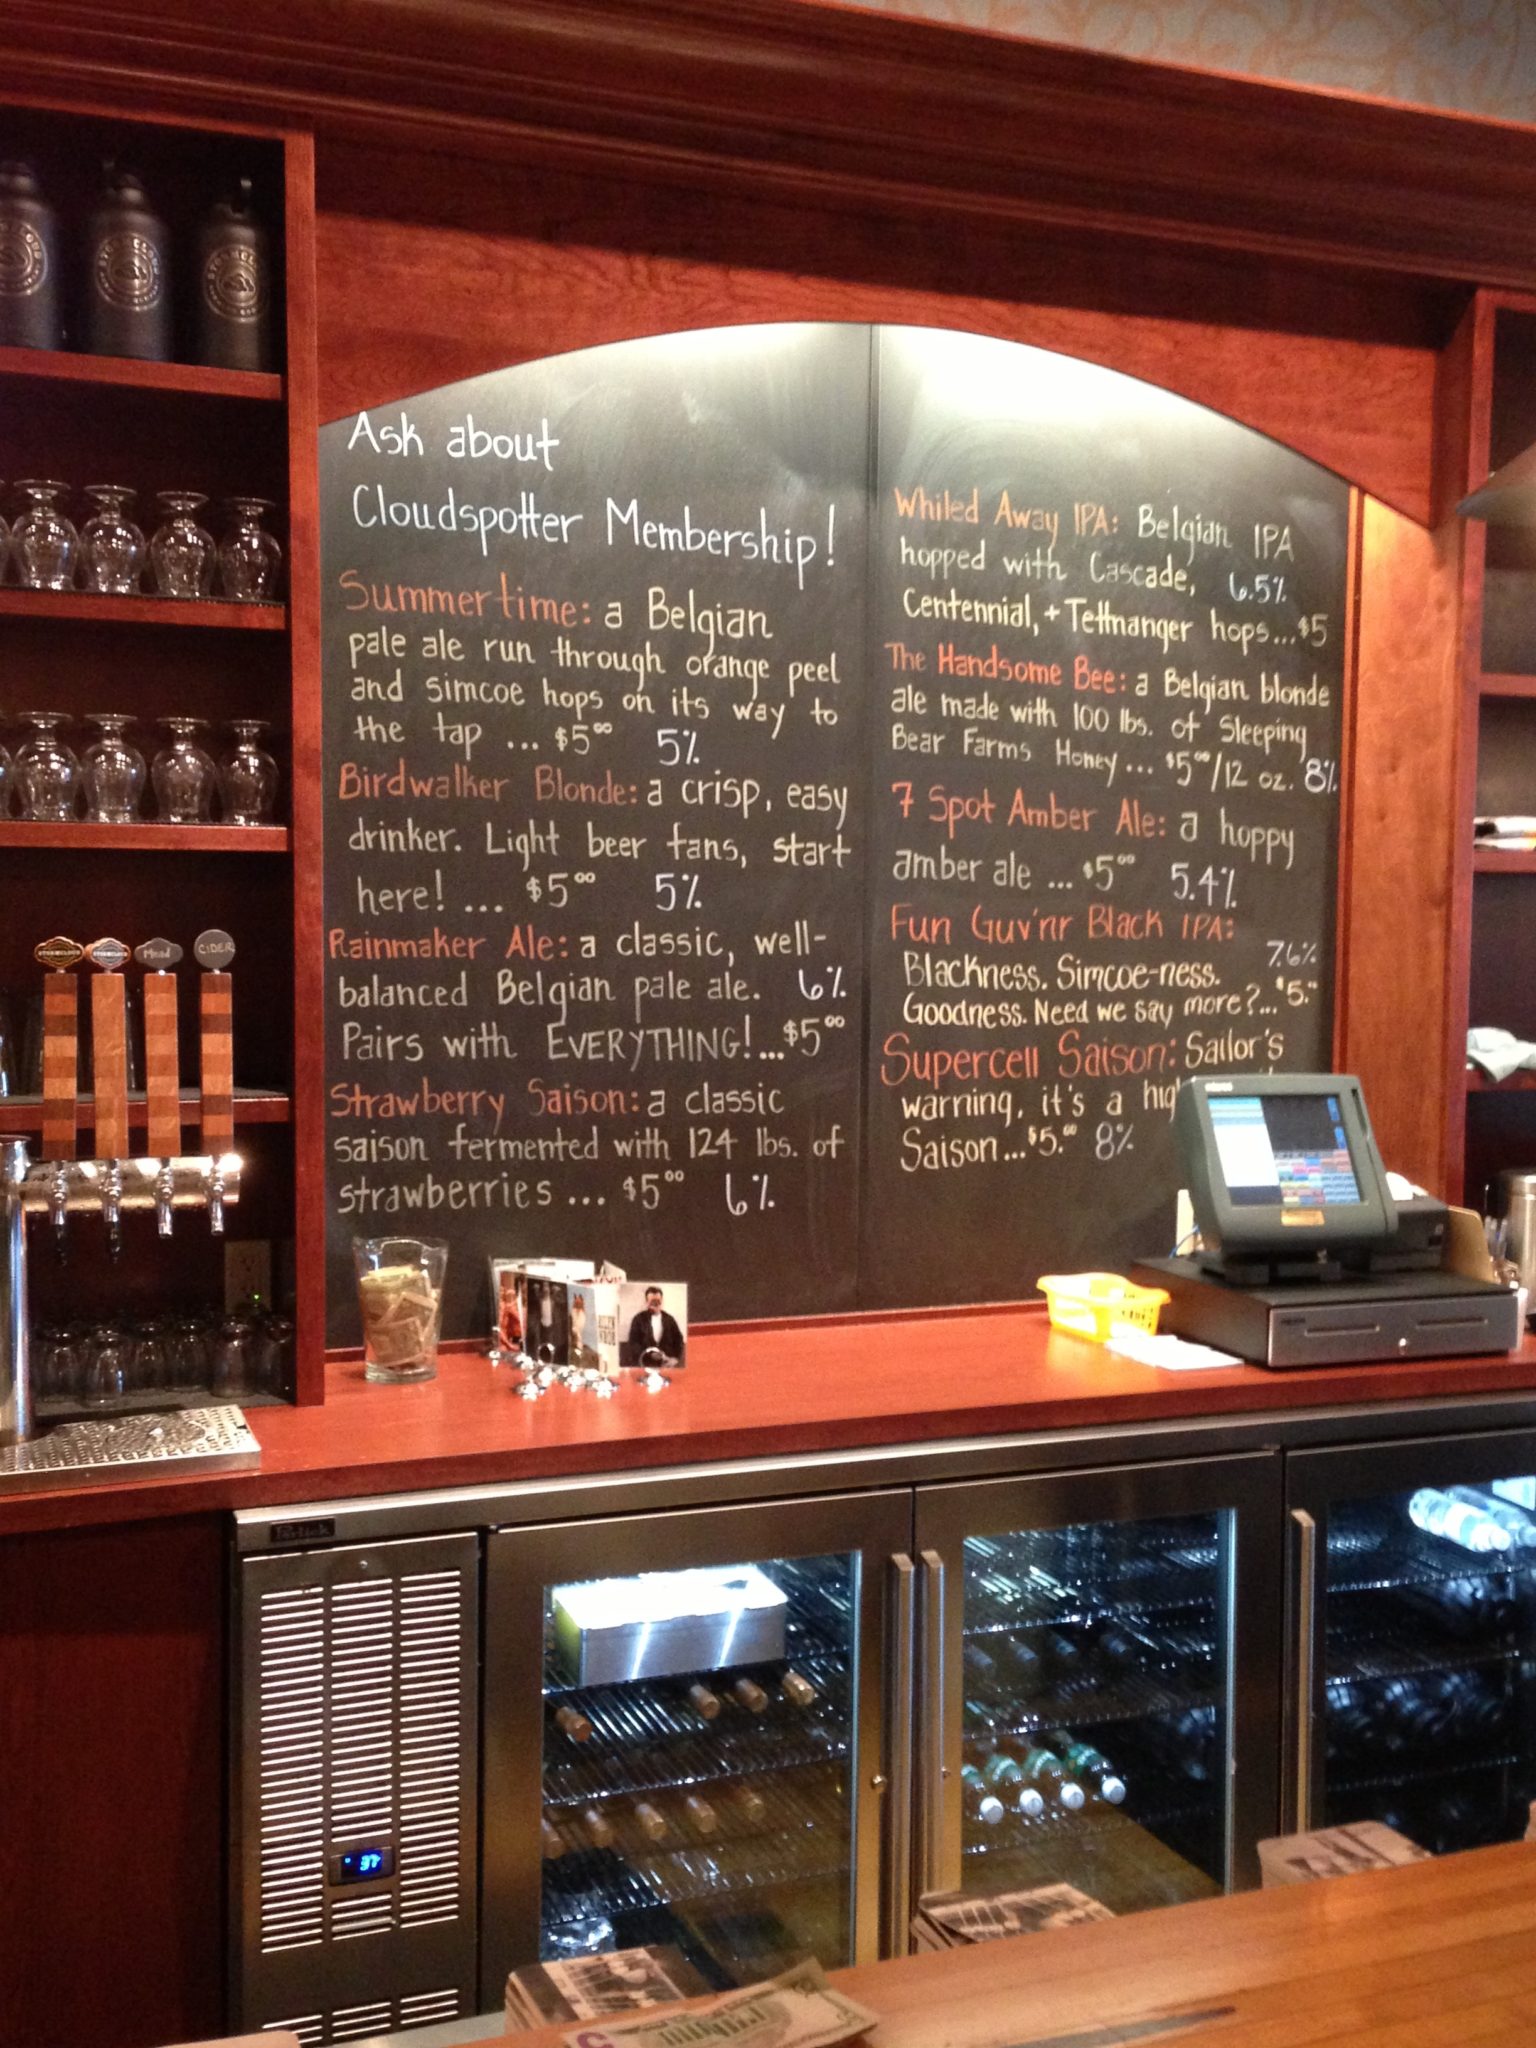 Ask about
Cloudspotter Membership!
Summertime: a Belgian
pale ale run through orange peel
and simcoe hops on its way to
the tap ... $5⁰⁰ 5%
Birdwalker Blonde: a crisp, easy
drinker. Light beer fans, start
here! ... $5⁰⁰ 5%
Rainmaker Ale: a classic, well-
balanced Belgian pale ale. 6%
Pairs with EVERYTHING!...$5⁰⁰
Strawberry Saison: a classic
saison fermented with 124 lbs. of
strawberries ... $5⁰⁰ 6%
Whiled Away IPA: Belgian IPA
hopped with Cascade, 6.5%
Centennial, + Tettnanger hops...$5
The Handsome Bee: a Belgian blonde
ale made with 100 lbs. of Sleeping
Bear Farms Honey... $5⁰⁰/12 oz. 8%
7 Spot Amber Ale: a hoppy
amber ale ... $5⁰⁰ 5.4%
Fun Guv'nr Black IPA:
Blackness. Simcoe-ness. 7.6%
Goodness. Need we say more?...$5.⁰⁰
Supercell Saison: Sailor's
warning, it's a hig
Saison...$5.⁰⁰ 8%
STORMCLOUD
STORMCLOUD
Mead
CIDER
Perlick
37